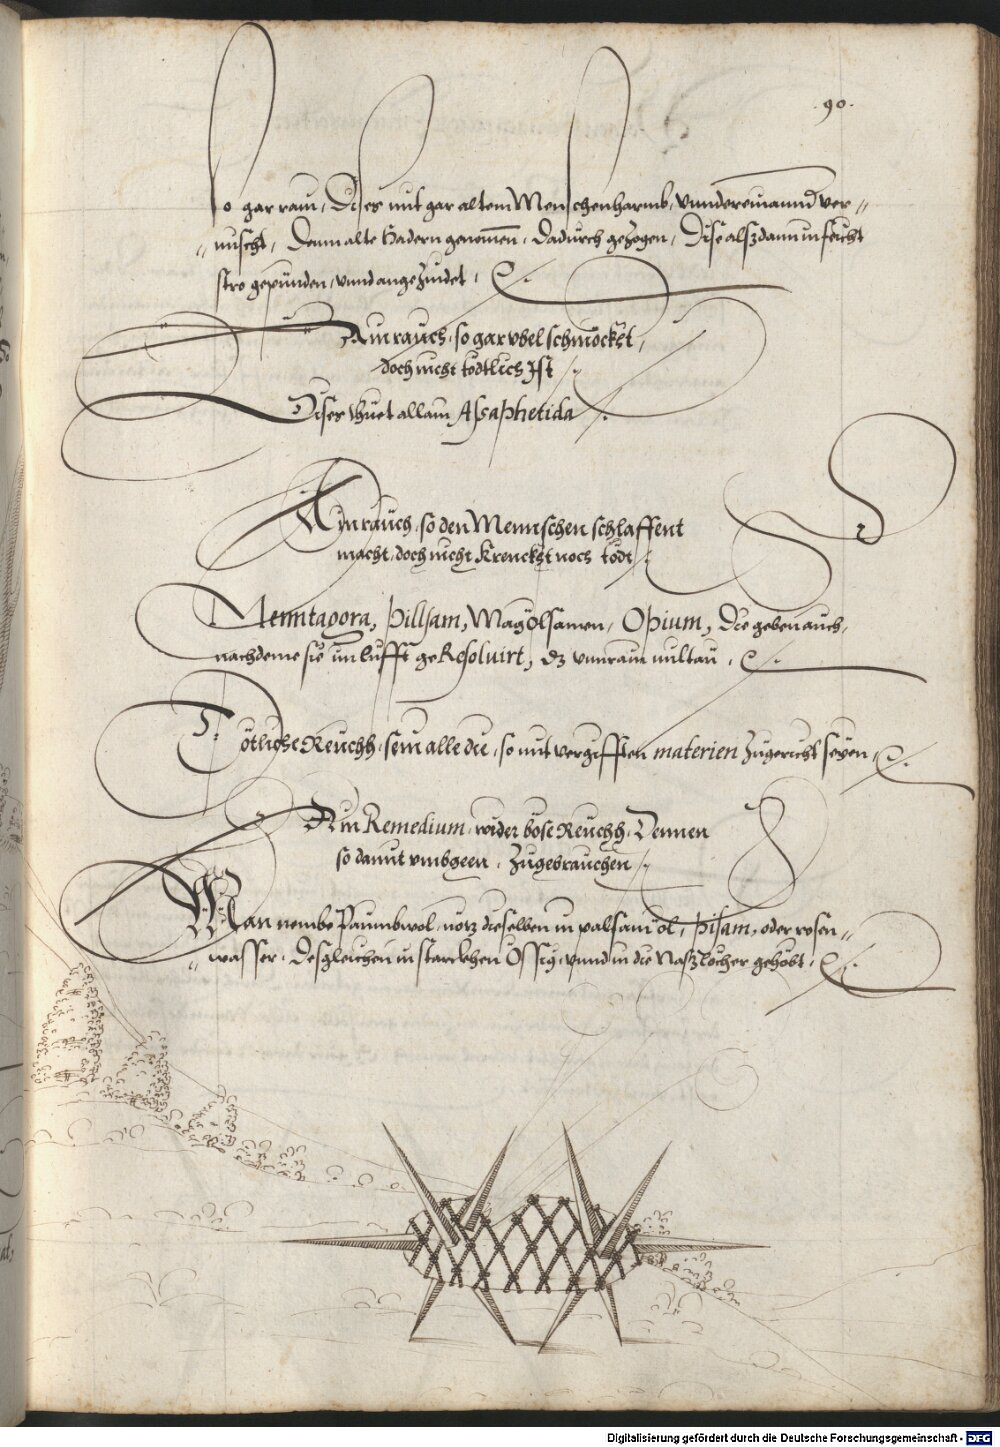 .90.
so gar rain, Dises mit gar altem Menschenharmb, vnndereinannd ver-
mischt, Denn alte Hadern genommen, dadurch gezogen, Dise alß dann in feicht
stro gepunden, vnnd angezündet.
Ain rauch, so gar vbel schmöckht,
doch nicht tödtlich Ist.
Diser thuet allain Assaphetida.
Ain rauch, so den Mennschen schlaffent
macht, doch nicht krenckht noch tödt.
Pillsam, Magölsamen, Opium, Die geben auch,
nachdeme sie im lufft geResoluirt, dz
Tötliche Reuchh, sein alle die, so mit vergifften materien zugericht seyen.
Ain Remedium, wider böse Reuchh, Dennen
so damit vmbgeen, zugebrauchen.
Man nembe Paumbwol, nötz dieselben in palsam öl, pisam, oder rosen-
wasser, Desgleichen in starckhen Össig, vnnd in die Naßlöcher gehöbt.
Digitalisierung gefördert durch die Deutsche Forschungsgemeinschaft - DFG